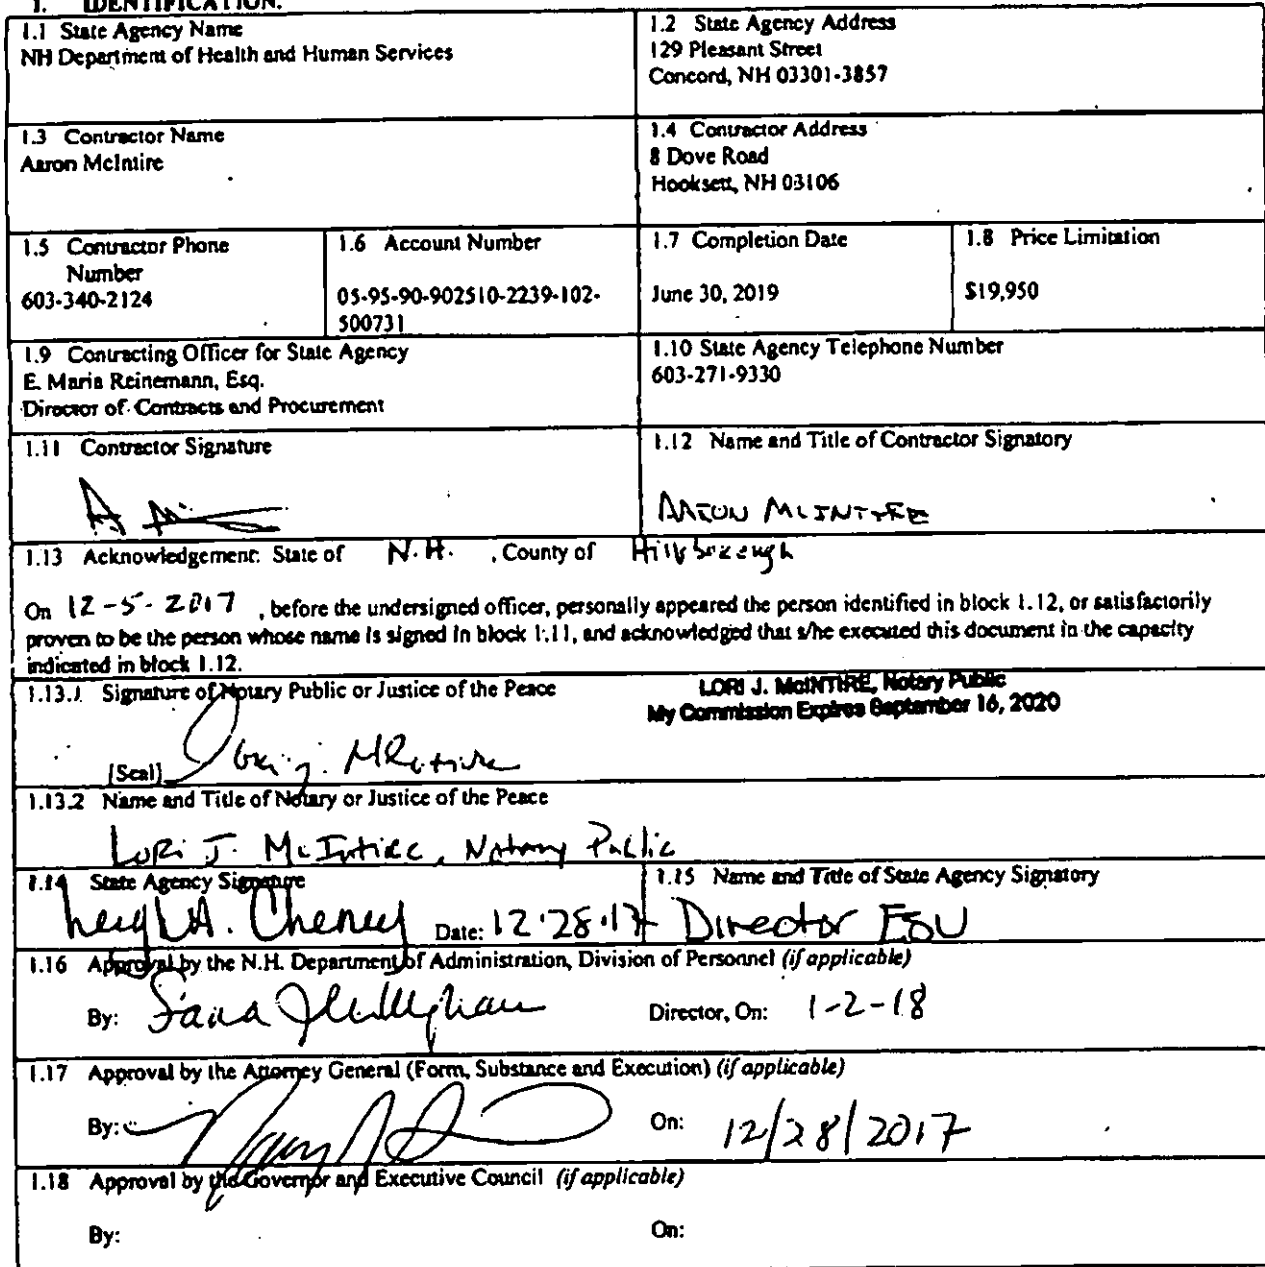 1. IDENTIFICATION.
1.1 State Agency Name
NH Department of Health and Human Services
1.2 State Agency Address
129 Pleasant Street
Concord, NH 03301-3857
1.3 Contractor Name
Aaron McIntire
1.4 Contractor Address
8 Dove Road
Hooksett, NH 03106
1.5 Contractor Phone
Number
603-340-2124
1.6 Account Number
05-95-90-902510-2239-102-
500731
1.7 Completion Date
June 30, 2019
1.8 Price Limitation
$19,950
1.9 Contracting Officer for State Agency
E. Maria Reinemann, Esq.
Director of Contracts and Procurement
1.10 State Agency Telephone Number
603-271-9330
1.11 Contractor Signature
1.12 Name and Title of Contractor Signatory
AARON MCINTIRE
1.13 Acknowledgement: State of N.H. , County of Hillsborough
On 12-5-2017 , before the undersigned officer, personally appeared the person identified in block 1.12, or satisfactorily
proven to be the person whose name is signed in block 1.11, and acknowledged that s/he executed this document in the capacity
indicated in block 1.12.
1.13.1 Signature of Notary Public or Justice of the Peace
LORI J. McINTIRE, Notary Public
My Commission Expires September 16, 2020
[Seal] Lori J. McIntire
1.13.2 Name and Title of Notary or Justice of the Peace
Lori J. McIntire, Notary Public
1.14 State Agency Signature
1.15 Name and Title of State Agency Signatory
A. Cheney Date: 12.28.17 Director ESU
1.16 Approval by the N.H. Department of Administration, Division of Personnel (if applicable)
By: Director, On: 1-2-18
1.17 Approval by the Attorney General (Form, Substance and Execution) (if applicable)
By: On: 12/28/2017
1.18 Approval by the Governor and Executive Council (if applicable)
By: On: